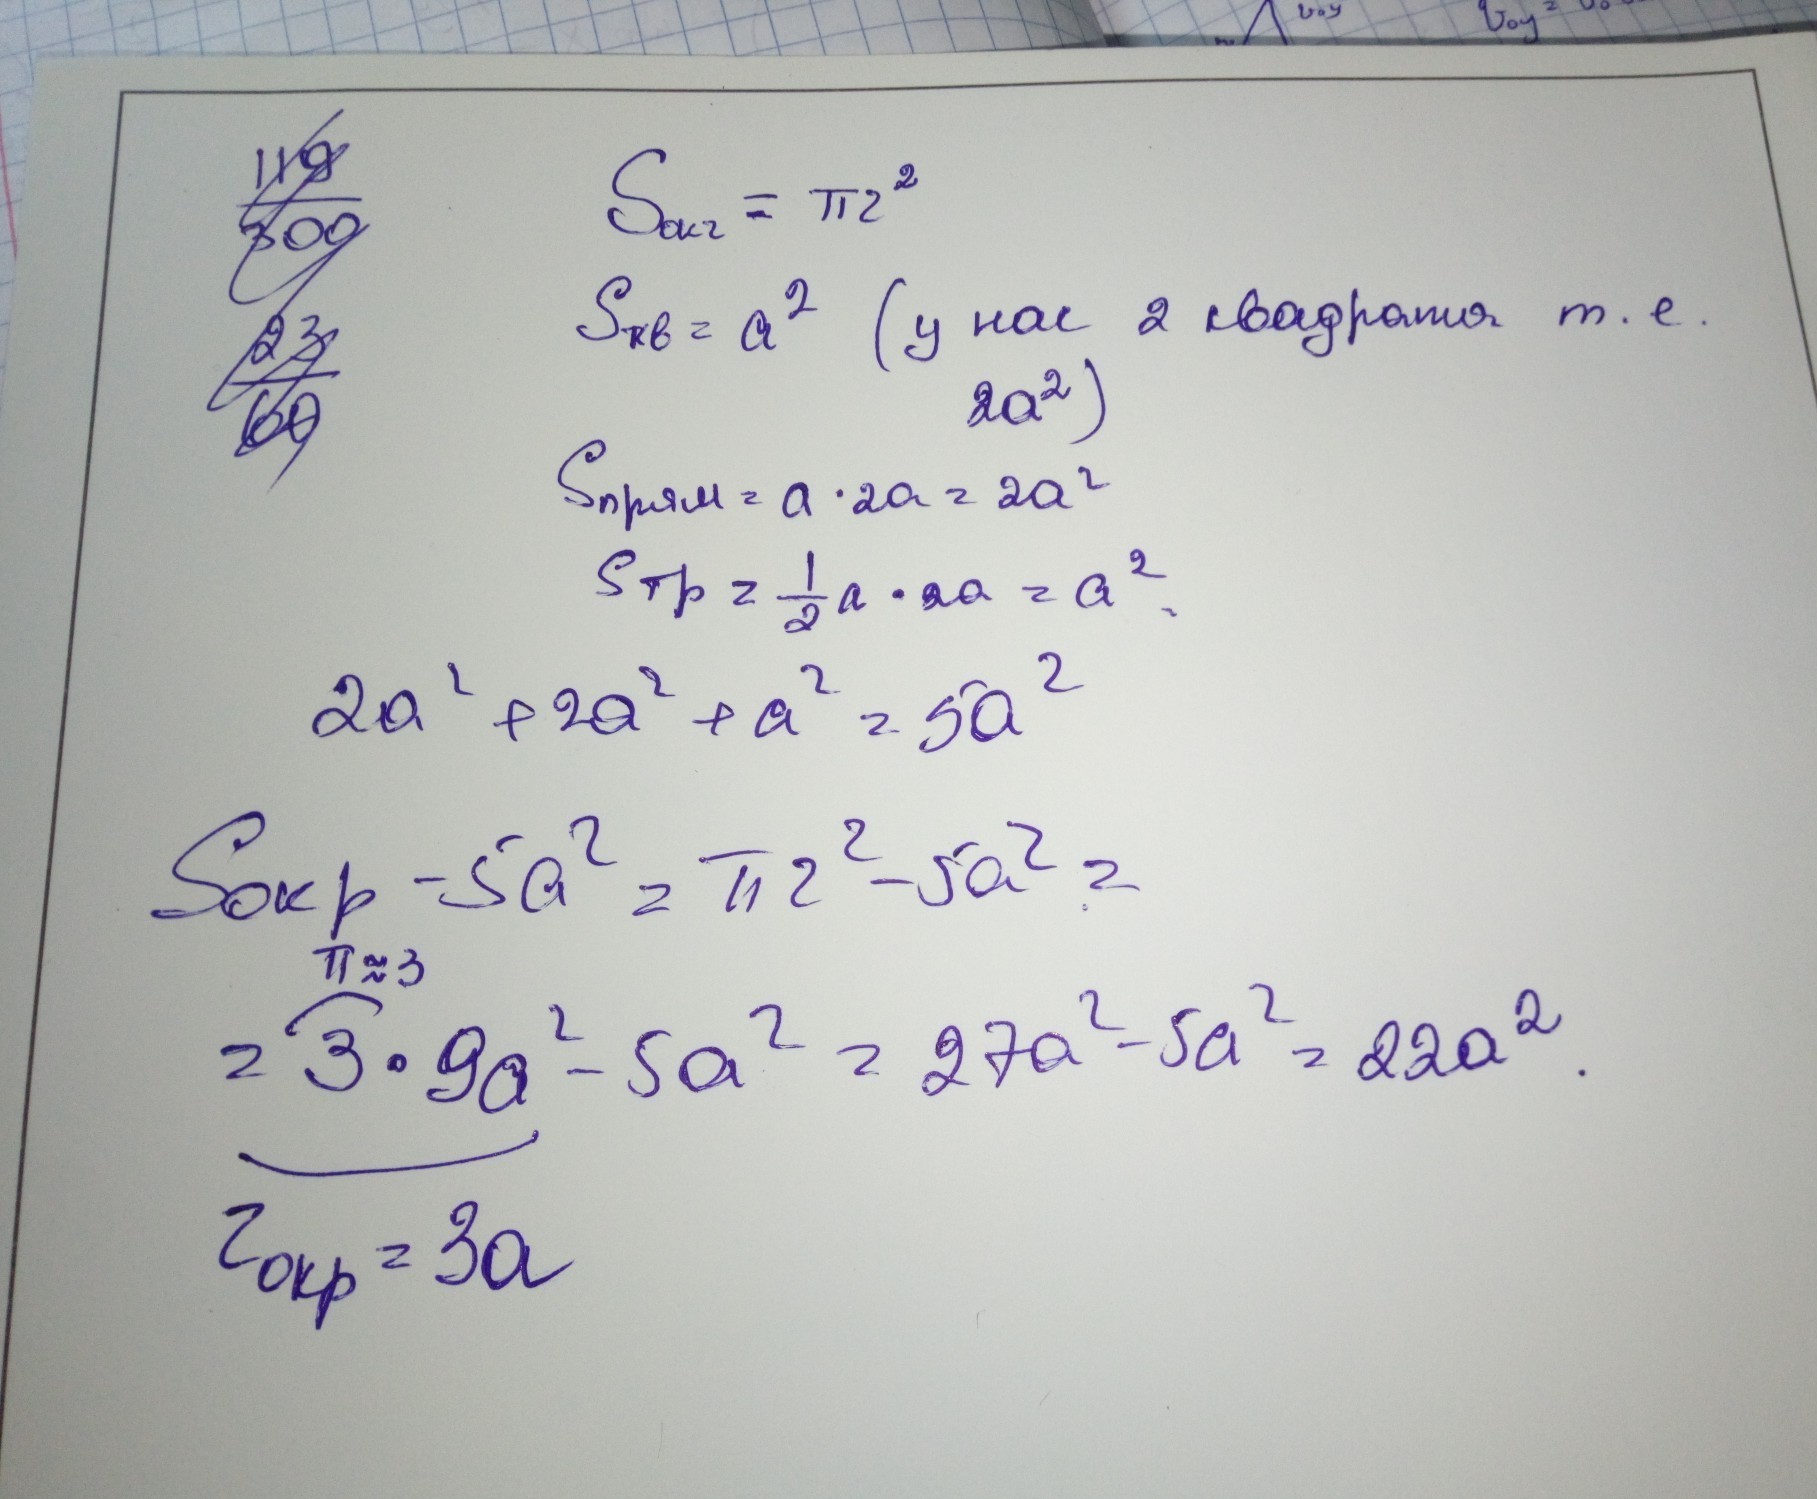 v₀y
v₀y =
119/300
23/60
Sокр = πr²
Sкв = a² (у нас 2 квадрата т.е.
2a²)
Sпрям = a · 2a = 2a²
Sтр = 1/2 a · 2a = a².
2a² + 2a² + a² = 5a²
Sокр - 5a² = πr² - 5a² =
π≈3
= 3 · 9a² - 5a² = 27a² - 5a² = 22a².
rокр = 3a